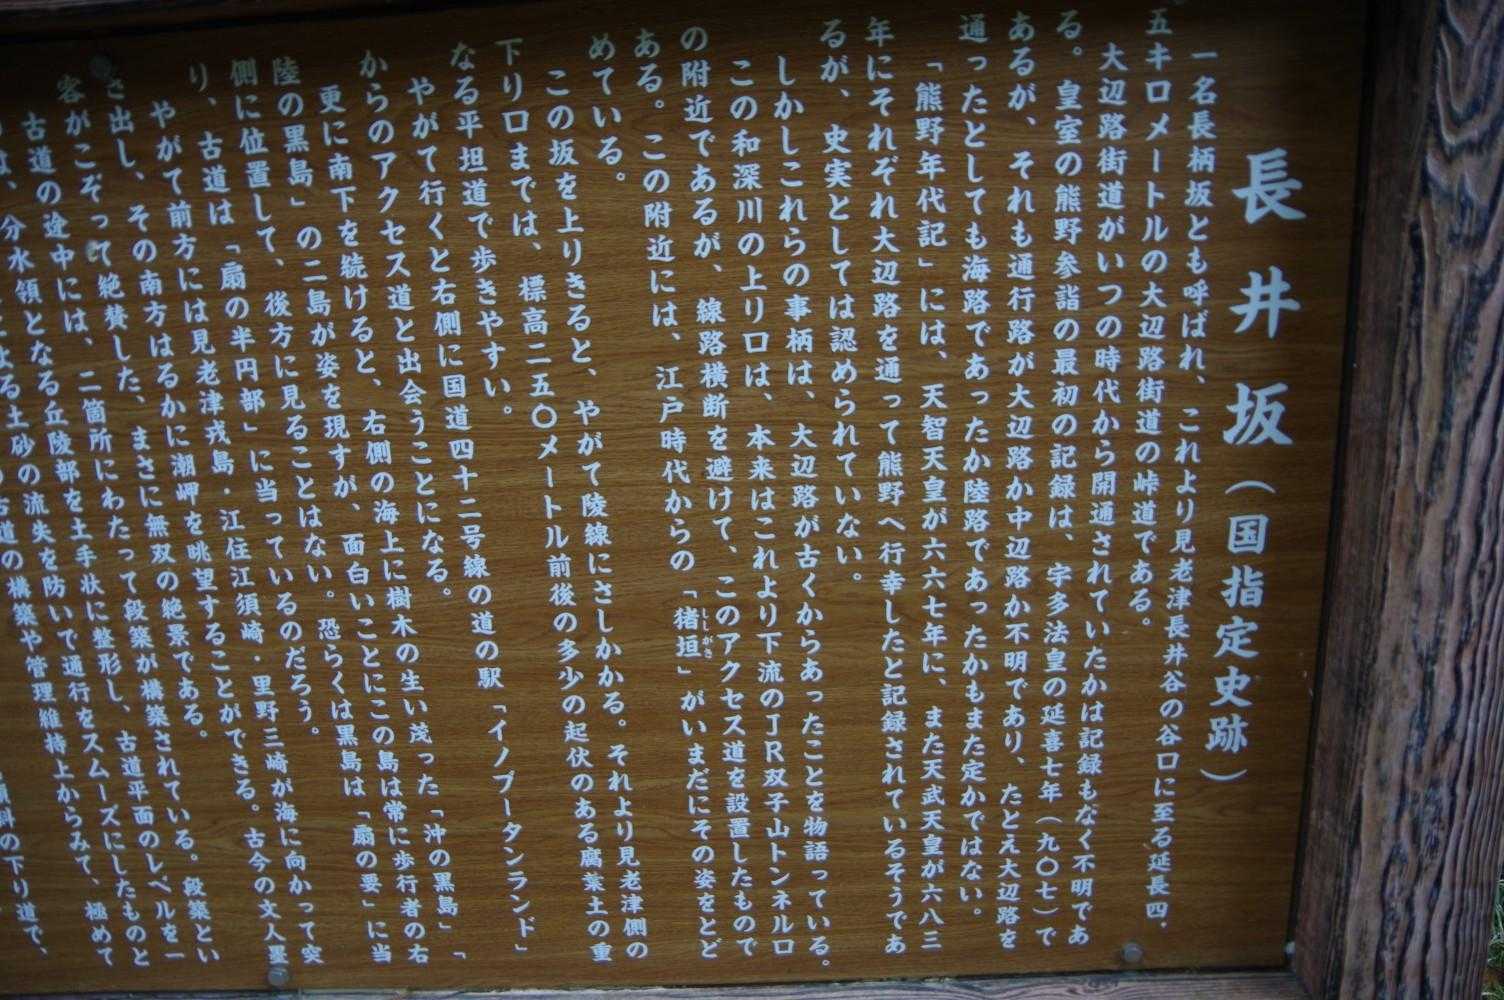 長井坂（国指定史跡）
一名長柄坂とも呼ばれ、これより見老津長井谷の谷口に至る延長四・
五キロメートルの大辺路街道の峠道である。
大辺路街道がいつの時代から開通されていたかは記録もなく不明であ
る。皇室の熊野参詣の最初の記録は、宇多法皇の延喜七年（九〇七）で
あるが、それも通行路が大辺路か中辺路か不明であり、たとえ大辺路を
通ったとしても海路であったか陸路であったかもまた定かではない。
「熊野年代記」には、天智天皇が六六七年に、また天武天皇が六八三
年にそれぞれ大辺路を通って熊野へ行幸したと記録されているそうであ
るが、史実としては認められていない。
しかしこれらの事柄は、大辺路が古くからあったことを物語っている。
この和深川の上り口は、本来はこれより下流のJR双子山トンネル口
の附近であるが、線路横断を避けて、このアクセス道を設置したもので
ある。この附近には、江戸時代からの「猪垣」がいまだにその姿をとど
めている。
この坂を上りきると、やがて陵線にさしかかる。それより見老津側の
下り口までは、標高二五〇メートル前後の多少の起伏のある腐葉土の重
なる平坦道で歩きやすい。
やがて行くと右側に国道四十二号線の道の駅「イノブータンランド」
からのアクセス道と出会うことになる。
更に南下を続けると、右側の海上に樹木の生い茂った「沖の黒島」「
陸の黒島」の二島が姿を現すが、面白いことにこの島は常に歩行者の右
側に位置して、後方に見ることはない。恐らくは黒島は「扇の要」に当
り、古道は「扇の半円部」に当っているのだろう。
やがて前方には見老津戎島・江住江須崎・里野三崎が海に向かって突
き出し、その南方はるかに潮岬を眺望することができる。古今の文人墨
客がこぞって絶賛した、まさに無双の絶景である。
古道の途中には、二箇所にわたって段築が構築されている。段築とい
は、分水領となる丘陵部を土手状に整形し、古道平面のレベルを一
よる土砂の流失を防いで通行をスムーズにしたものと
古道の構築や管理維持上からみて、極めて
傾斜の下り道で、